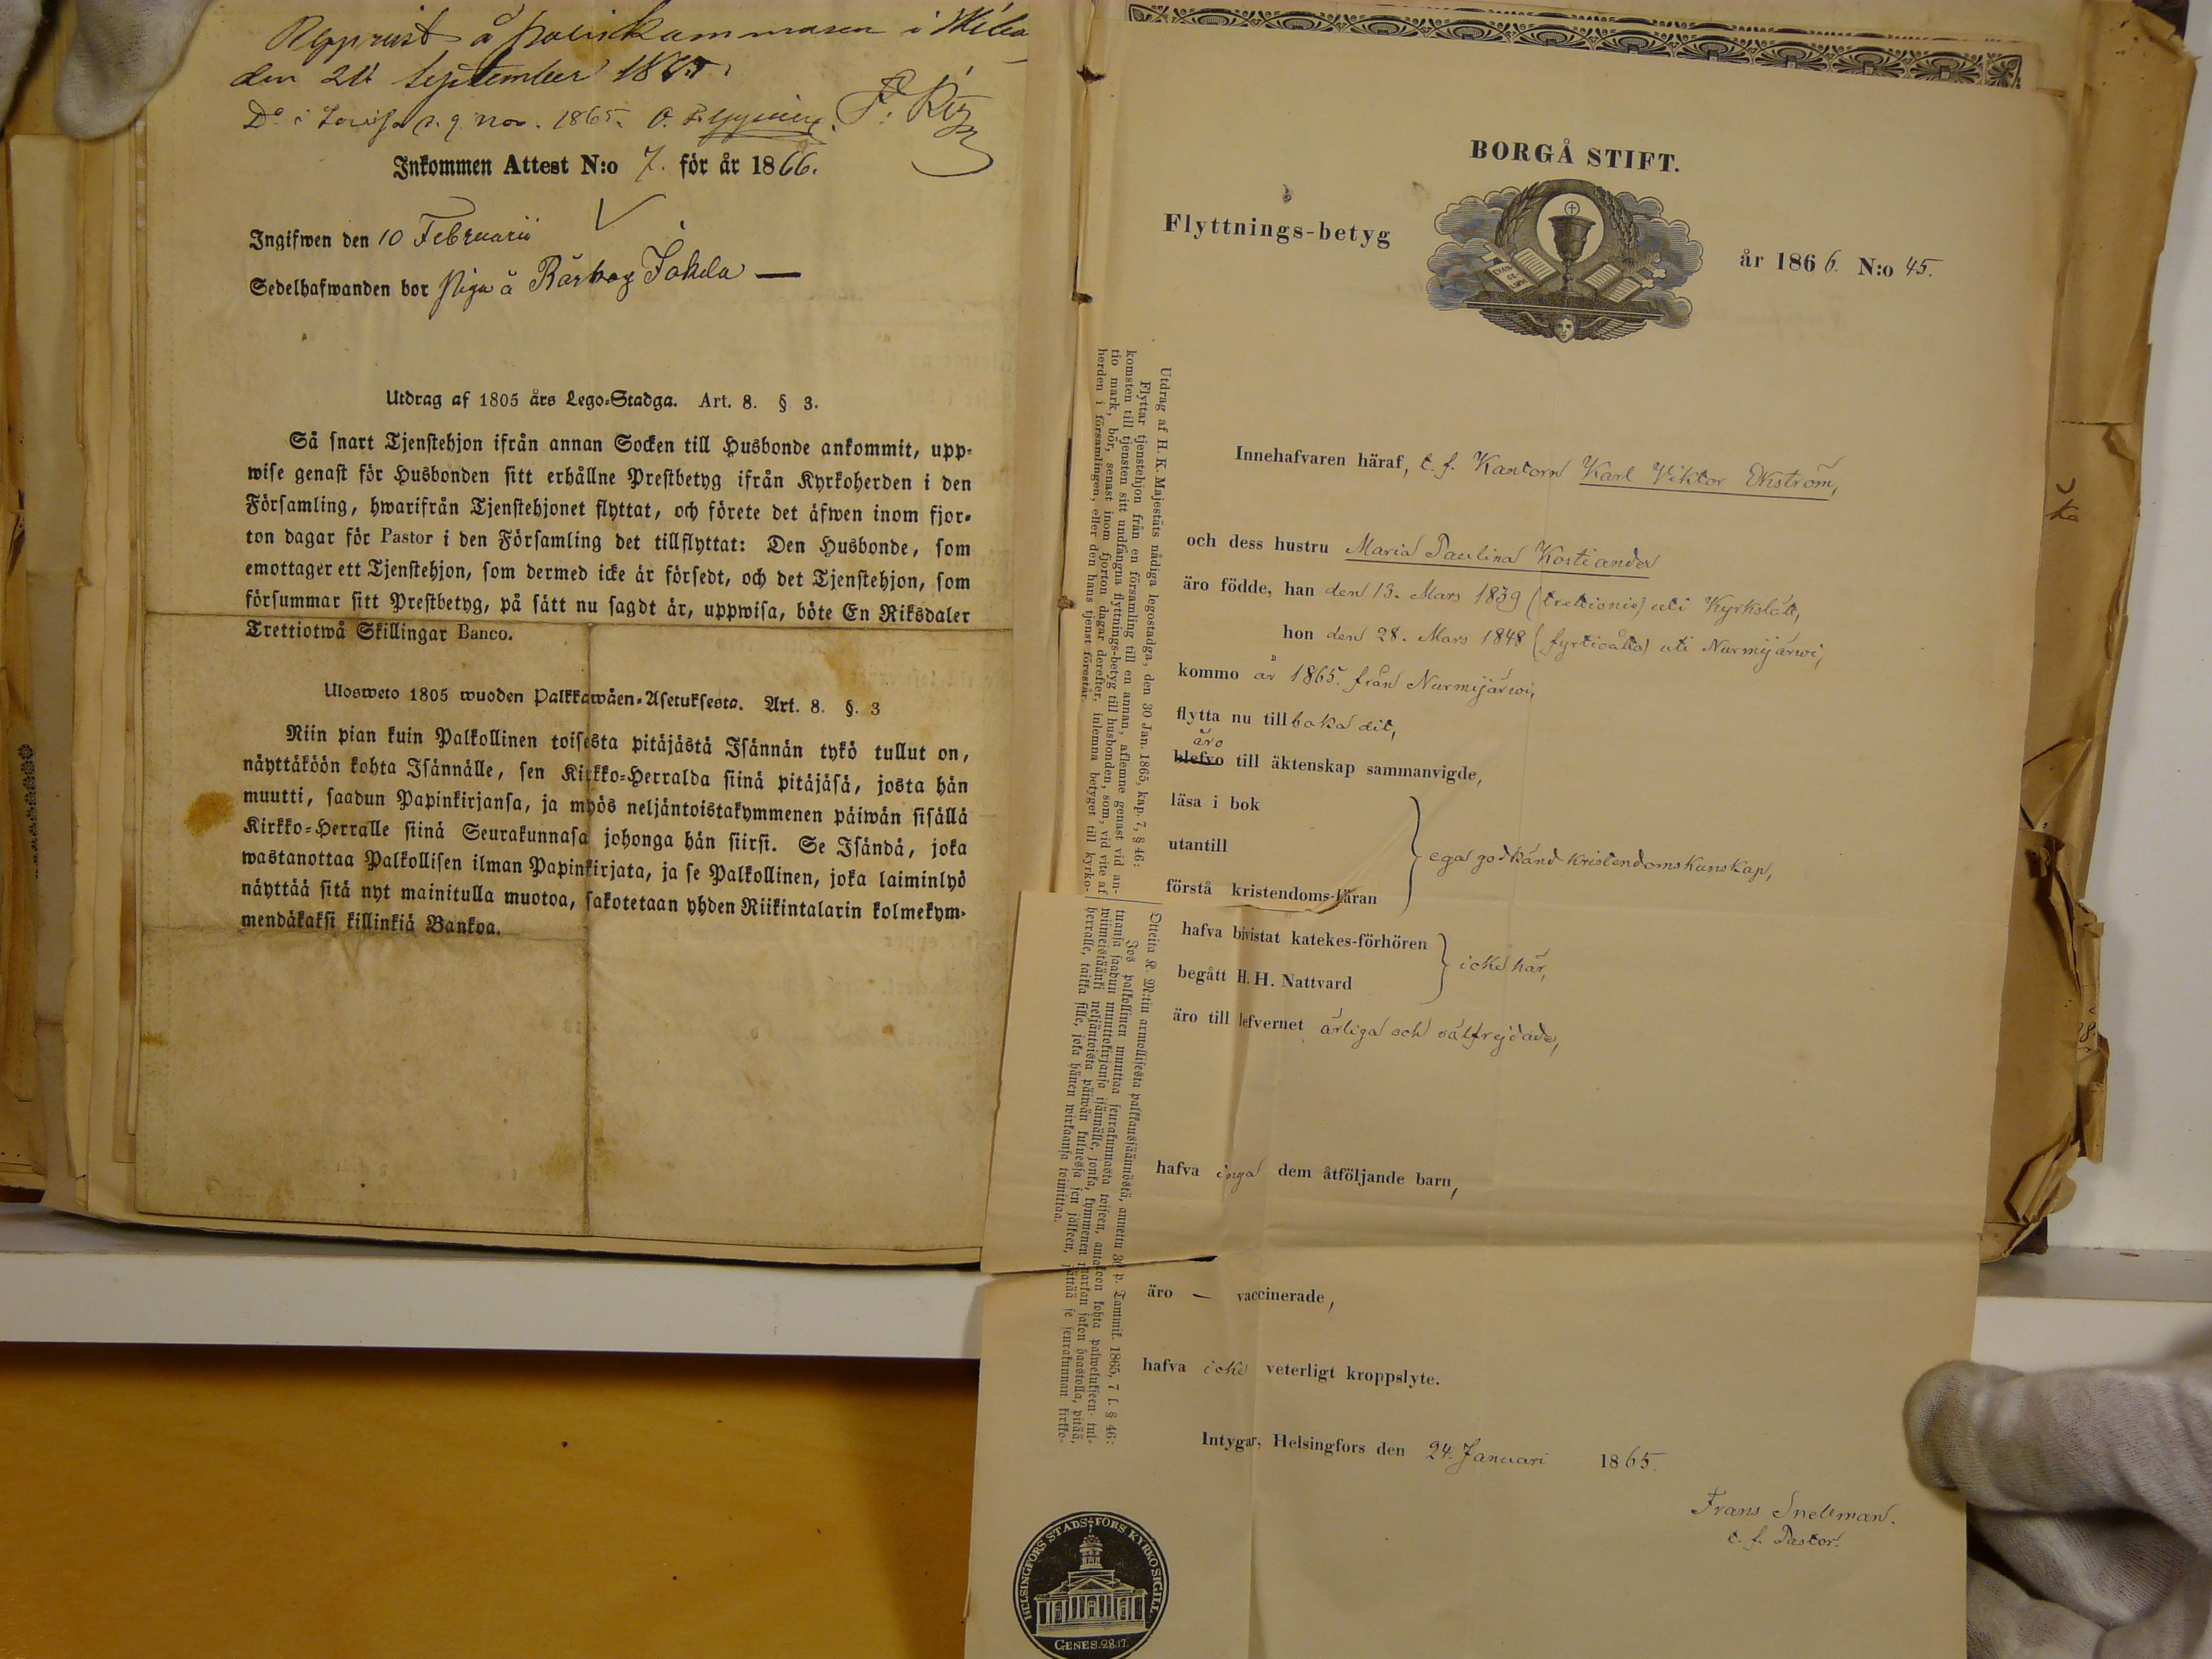 den 21 September 1865.
nov. 1865.
Inkommen Attest N:o 7. för år 1866.
Ingifwen den 10 Februarii
Sedelhafwanden bor Piga å Jokela —
Utdrag af 1805 års Lego-Stadga. Art. 8. § 3.
Så snart Tjenstehjon ifrån annan Socken till Husbonde ankommit, upp-
wise genast för Husbonden sitt erhållne Prestbetyg ifrån Kyrkoherden i den
Församling, hwarifrån Tjenstehjonet flyttat, och förete det äfwen inom fjor-
ton dagar för Pastor i den Församling det tillflyttat: Den Husbonde, som
emottager ett Tjenstehjon, som dermed icke är försedt, och det Tjenstehjon, som
försummar sitt Prestbetyg, på sätt nu sagdt är, uppwisa, böte En Riksdaler
Trettiotwå Skillingar Banco.
Ulosweto 1805 wuoden Palkkawäen-Asetuksesta. Art. 8. §. 3
Niin pian kuin Palkollinen toisesta pitäjästä Isännän tykö tullut on,
näyttäköön kohta Isännälle, sen Kirkko-Herralda siinä pitäjäsä, josta hän
muutti, saadun Papinkirjansa, ja myös neljäntoistakymmenen päiwän sisällä
Kirkko-Herralle siinä Seurakunnasa johonga hän siirsi. Se Isändä, joka
wastanottaa Palkollisen ilman Papinkirjata, ja se Palkollinen, joka laiminlyö
näyttää sitä nyt mainitulla muotoa, sakotetaan yhden Riikintalarin kolmekym-
mendäkaksi killinkiä Bankoa.
BORGÅ STIFT.
Flyttnings-betyg
år 1866. N:o 45.
Utdrag af H. K. Majestäts nådiga legostadga, den 30 Jan. 1865, kap. 7, § 46:
Flyttar tjenstehjon från en församling till en annan, aflemne genast vid an-
komsten till tjensten sitt undfångna flyttnings-betyg till husbonden, som, vid vite af
tio mark, bör, senast inom fjorton dagar derefter, inlemna betyget till kyrko-
herden i församlingen, eller den hans tjenst förestår.
Otteita K. M:tin armollisesta palkkaussäännöstä, annettu 30 p. Tammik. 1865, 7 l. § 46:
Jos palkollinen muuttaa seurakunnasta toiseen, antakoon kohta palwelukseen tul-
tuansa saadun muuttokirjansa isännälle, jonka, kymmenen markan sakon haastolla, pitää,
wiimeistäänki neljäntoista päiwän kuluessa sen jälkeen, jättää se seurakunnan kirkko-
herralle, taikka sille, joka hänen wirkaansa toimittaa.
Innehafvaren häraf, t. f. Kantorn Karl Viktor Ekström,
och dess hustru Maria Paulina Kostiander
äro födde, han den 13. Mars 1839 (trettionio) uti Kyrkslätt,
hon den 28. Mars 1848 (fyrtioåtta) uti Nurmijärwi,
kommo år 1865. från Nurmijärwi,
flytta nu till baka dit,
äro
blefvo till äktenskap sammanvigde,
läsa i bok
utantill
ega godkänd kristendomskunskap,
förstå kristendoms-läran
hafva bivistat katekes-förhören
icke här,
begått H. H. Nattvard
äro till lefvernet ärliga och välfrejdade,
hafva inga dem åtföljande barn,
äro — vaccinerade,
hafva icke veterligt kroppslyte.
Intygar, Helsingfors den 24. Januari 1865.
Frans Snellman.
t. f. Pastor.
HELSINGFORS STADS-FÖRS KYRKO SIGILL.
GENES. 28.17.